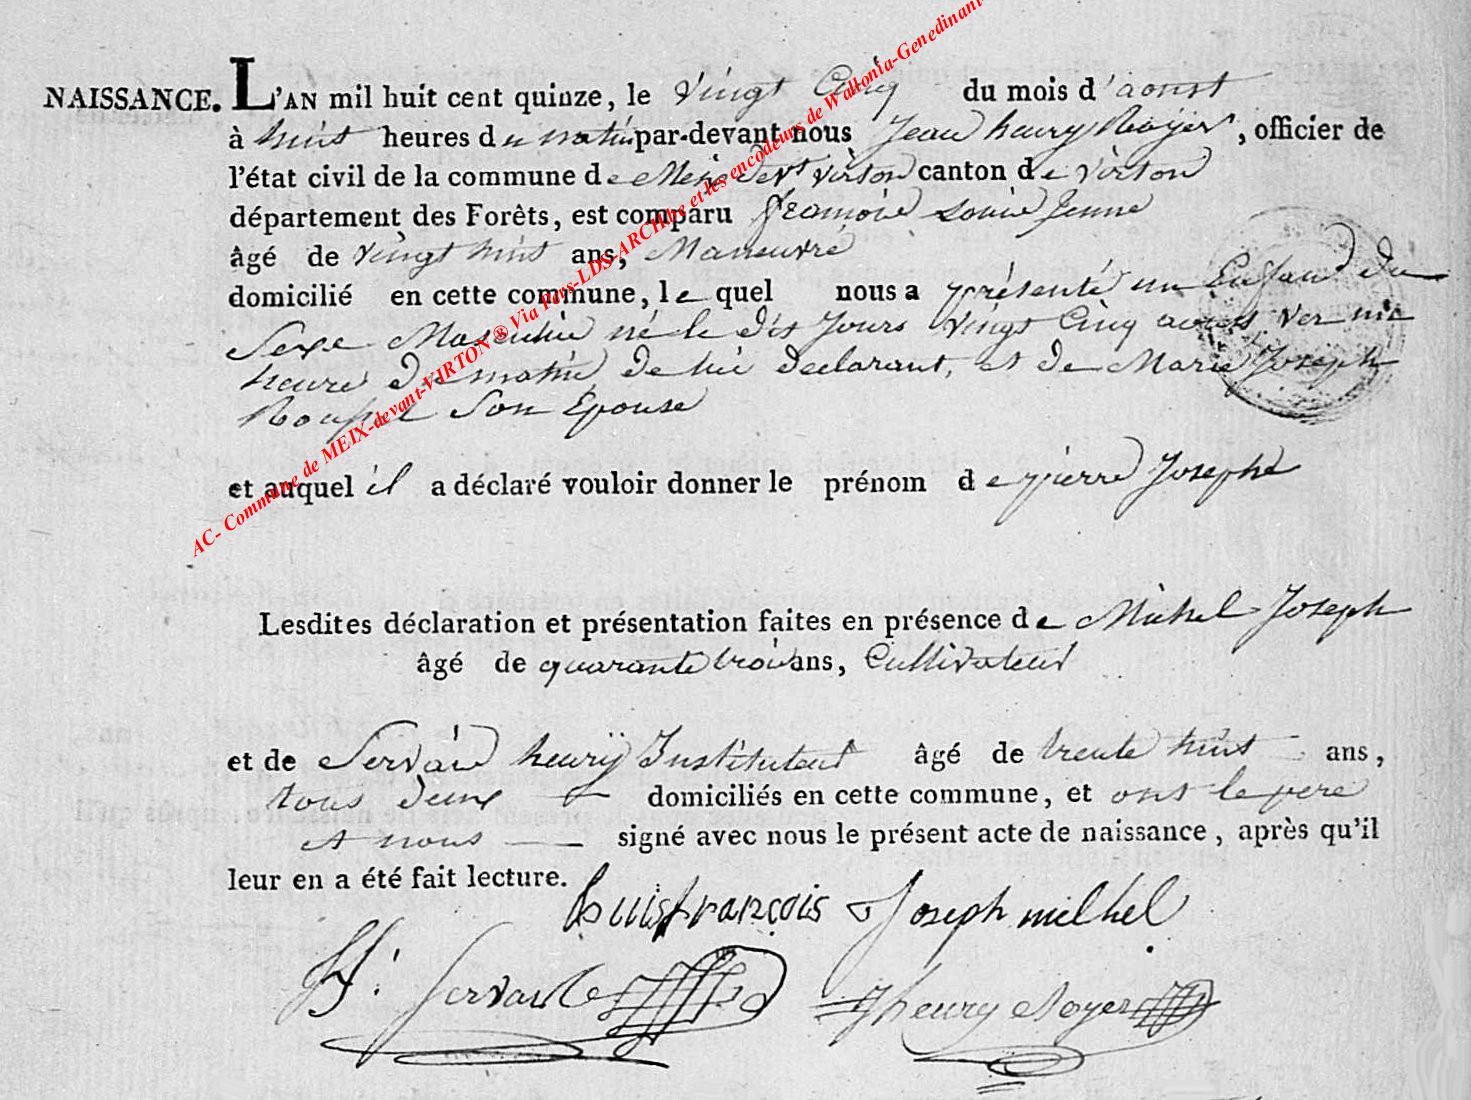 NAISSANCE. L'AN mil huit cent quinze, le vingt Cinq du mois d'aoust
à huit heures du matin par-devant nous Jean henry Noyer, officier de
l'état civil de la commune de Meix devt virton canton de virton
département des Forêts, est comparu francois Louis Jenne
âgé de vingt huit ans, Maneuvre
domicilié en cette commune, le quel nous a présenté un Enfant du
Sexe Masculin né le dit Jours vingt Cinq aoust ver
heure du matin de lui declarant, et de Marie Joseph
Son Epouse
et auquel il a déclaré vouloir donner le prénom de pierre Josephe
Lesdites déclaration et présentation faites en présence de Michel Joseph
âgé de quarante trois ans, Cultivateur
et de Servais henrÿ Instituteur âgé de trente huit ans,
tous deux domiciliés en cette commune, et ont le pere
et nous signé avec nous le présent acte de naissance, après qu'il
leur en a été fait lecture.
Louis françois Joseph milhel
H. Servais Jhenry Noyer
AC- Commune de MEIX-devant-VIRTON ® Via Pers-LDS-ARCH.be et les encodeurs de Wallonia-Genedinant